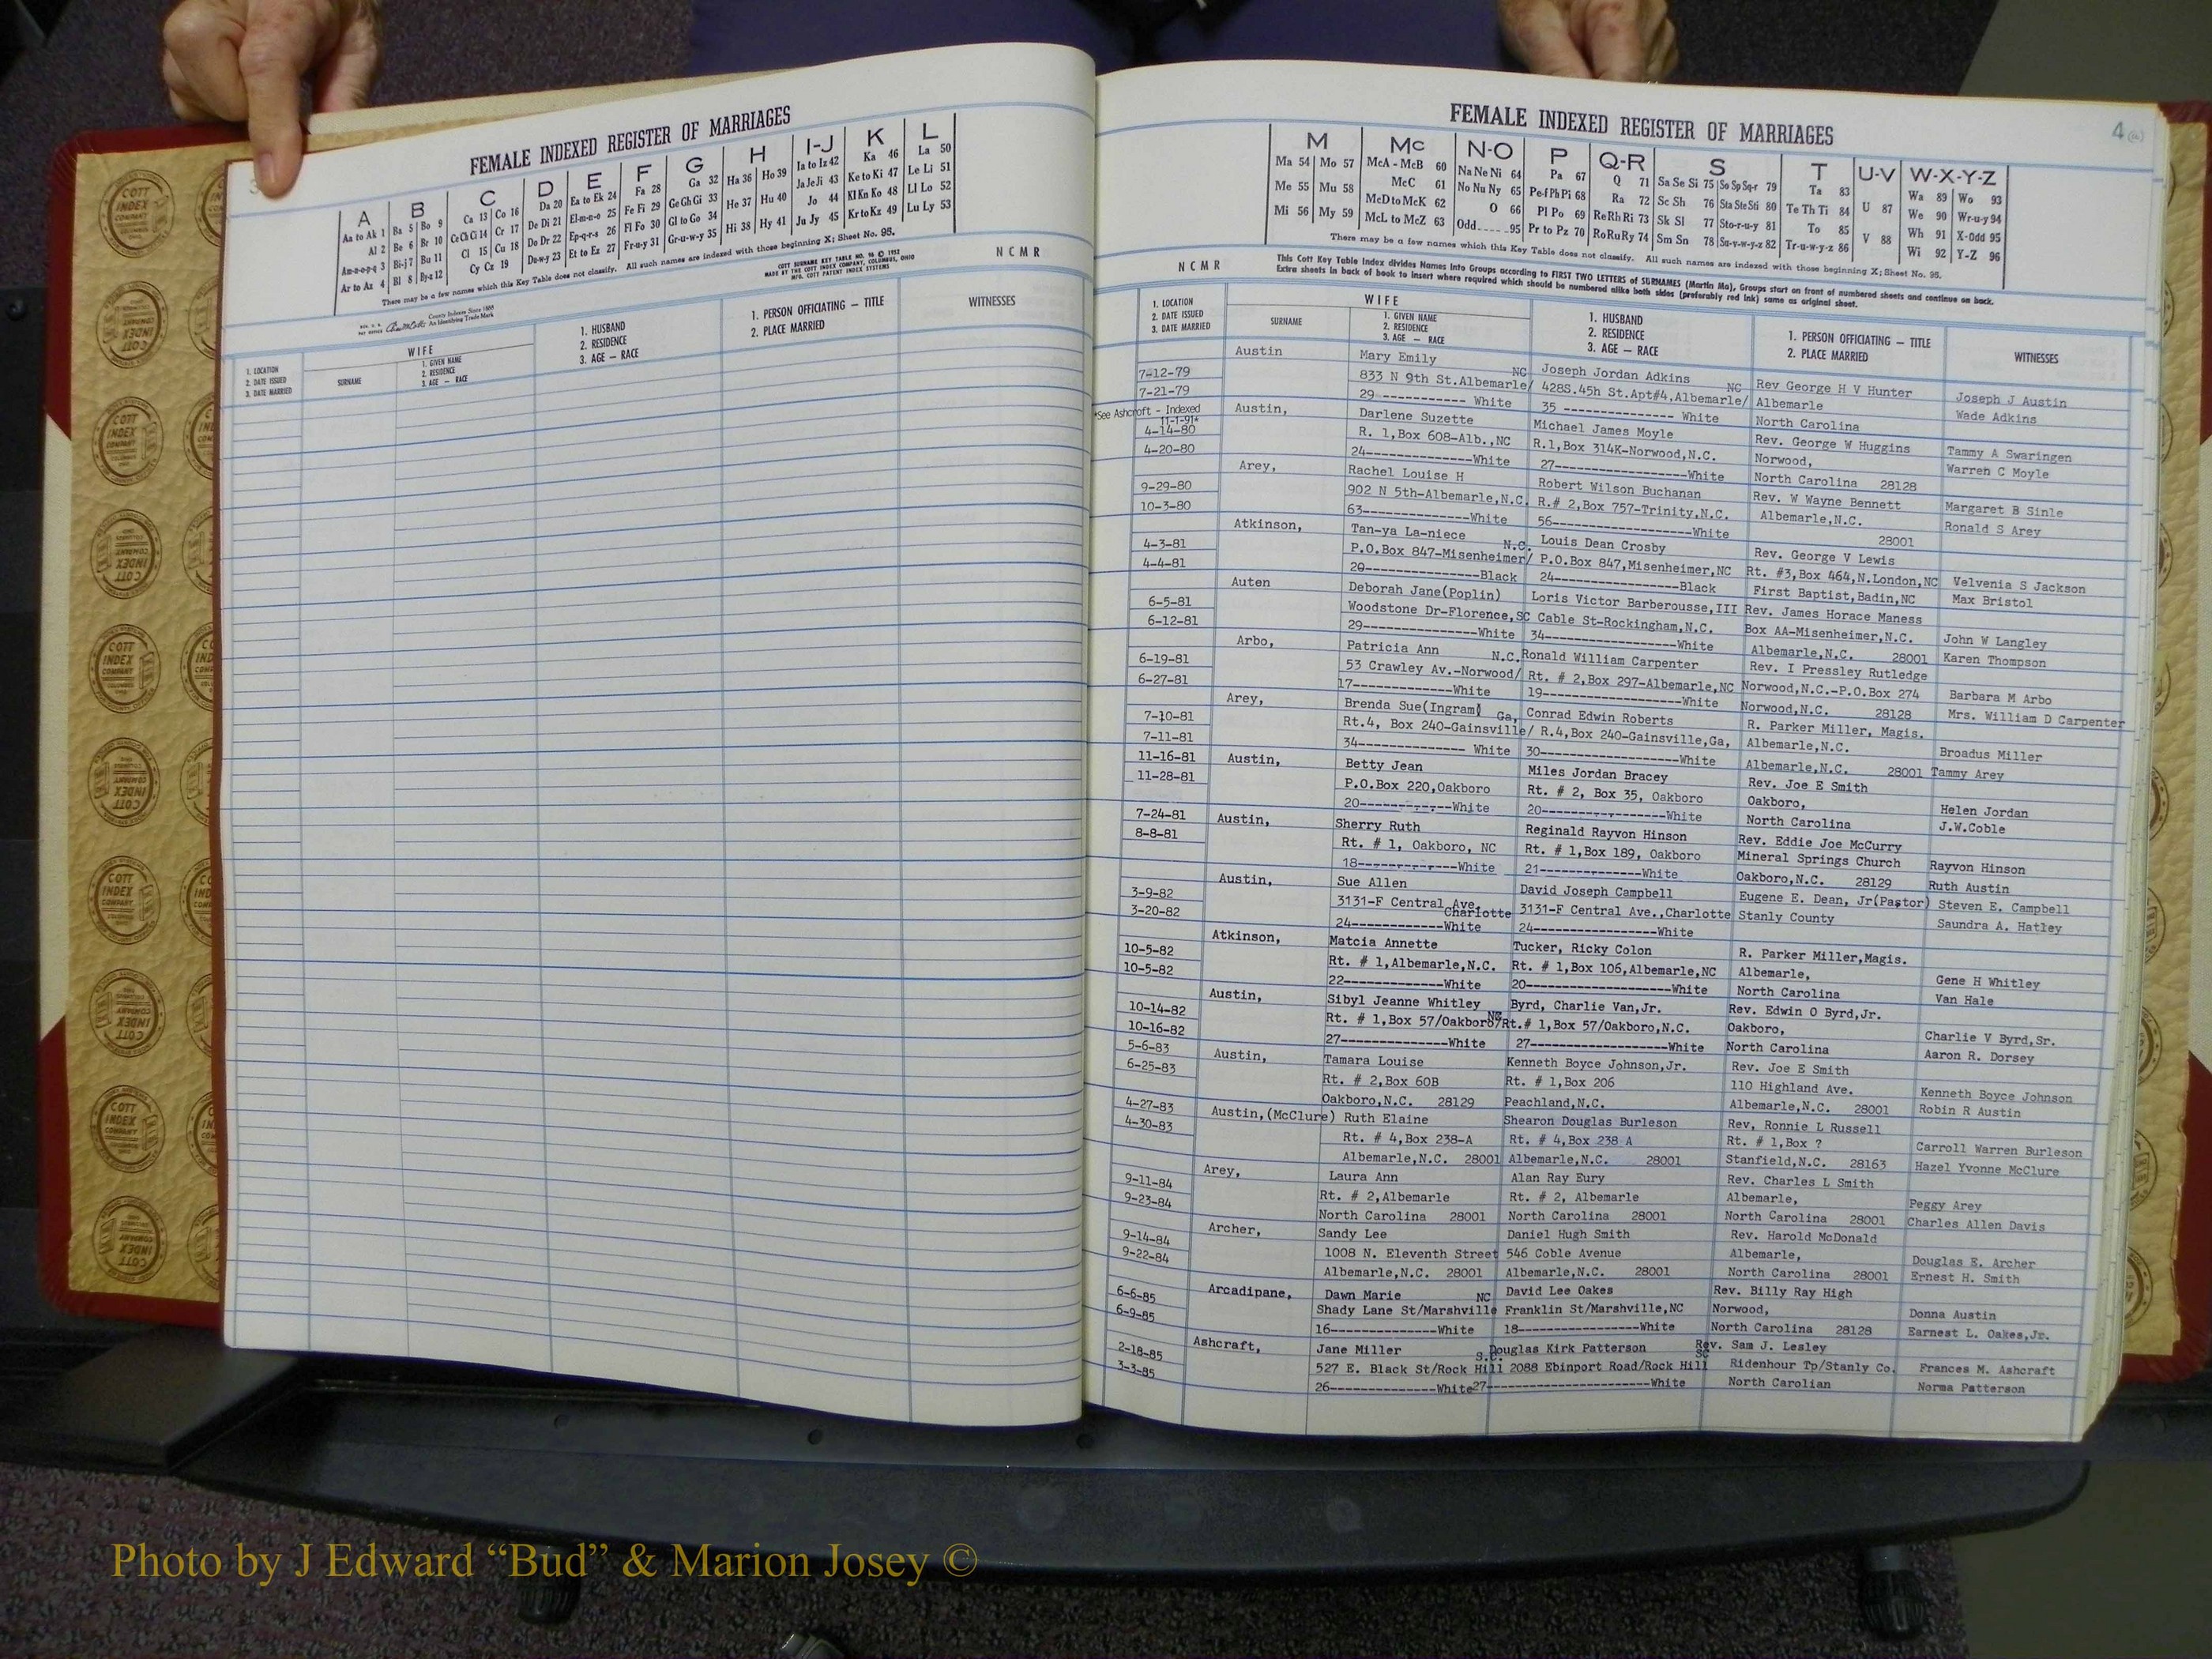 FEMALE INDEXED REGISTER OF MARRIAGES
A B C D E F G H I-J K L
Aa to Ak 1 Ba 5 Bo 9 Ca 13 Co 16 Da 20 Ea to Ek 24 Fa 28 Ga 32 Ha 36 Ho 39 Ia to Iz 42 Ka 46 La 50
Al 2 Be 6 Br 10 Ce Ch Ci 14 Cr 17 De Di 21 El-m-n-o 25 Fe Fi 29 Ge Gh Gi 33 He 37 Hu 40 Ja Je Ji 43 Ke to Ki 47 Le Li 51
Am-n-o-p-q 3 Bi-j 7 Bu 11 Cl 15 Cu 18 Do Dr 22 Ep-q-r-s 26 Fl Fo 30 Gl to Go 34 Hi 38 Hy 41 Jo 44 Kl Kn Ko 48 Ll Lo 52
Ar to Az 4 Bl 8 By-z 12 Cy Cz 19 Du-w-y 23 Et to Ez 27 Fr-u-y 31 Gr-u-w-y 35 Ju Jy 45 Kr to Kz 49 Lu Ly 53
There may be a few names which this Key Table does not classify. All such names are indexed with those beginning X; Sheet No. 95.
County Indexes Since 1888
An Identifying Trade Mark
COTT SURNAME KEY TABLE NO. 96 © 1952
MADE BY THE COTT INDEX COMPANY, COLUMBUS, OHIO
MFG. COTT PATENT INDEX SYSTEMS
N C M R
1. LOCATION
2. DATE ISSUED
3. DATE MARRIED
WIFE
SURNAME
1. GIVEN NAME
2. RESIDENCE
3. AGE — RACE
1. HUSBAND
2. RESIDENCE
3. AGE — RACE
1. PERSON OFFICIATING — TITLE
2. PLACE MARRIED
WITNESSES
FEMALE INDEXED REGISTER OF MARRIAGES
4
M Mc N-O P Q-R S T U-V W-X-Y-Z
Ma 54 Mo 57 McA - McB 60 Na Ne Ni 64 Pa 67 Q 71 Sa Se Si 75 So Sp Sq-r 79 Ta 83 U 87 Wa 89 Wo 93
Me 55 Mu 58 McC 61 No Nu Ny 65 Pe-f Ph Pi 68 Ra 72 Sc Sh 76 Sta Ste Sti 80 Te Th Ti 84 V 88 We 90 Wr-u-y 94
Mi 56 My 59 McD to McK 62 O 66 Pl Po 69 Re Rh Ri 73 Sk Sl 77 Sto-r-u-y 81 To 85 Wh 91 X-Odd 95
McL to McZ 63 Odd.....95 Pr to Pz 70 Ro Ru Ry 74 Sm Sn 78 Su-v-w-y-z 82 Tr-u-w-y-z 86 Wi 92 Y-Z 96
There may be a few names which this Key Table does not classify. All such names are indexed with those beginning X; Sheet No. 95.
This Cott Key Table Index divides Names into Groups according to FIRST TWO LETTERS of SURNAMES (Martin Ma), Groups start on front of numbered sheets and continue on back.
Extra sheets in back of book to insert where required which should be numbered alike both sides (preferably red ink) same as original sheet.
N C M R
1. LOCATION
2. DATE ISSUED
3. DATE MARRIED
WIFE
SURNAME
1. GIVEN NAME
2. RESIDENCE
3. AGE — RACE
1. HUSBAND
2. RESIDENCE
3. AGE — RACE
1. PERSON OFFICIATING — TITLE
2. PLACE MARRIED
WITNESSES
Austin Mary Emily Joseph Jordan Adkins Rev George H V Hunter Joseph J Austin
7-12-79 833 N 9th St.Albemarle/NC 428S.45h St.Apt#4,Albemarle/NC Albemarle Wade Adkins
7-21-79 29 ------------ White 35 -------------- White North Carolina
*See Ashcroft - Indexed 11-1-91*
Austin, Darlene Suzette Michael James Moyle Rev. George W Huggins Tammy A Swaringen
4-14-80 R. 1,Box 608-Alb.,NC R.1,Box 314K-Norwood,N.C. Norwood, Warren C Moyle
4-20-80 24--------------White 27-----------------White North Carolina 28128
Arey, Rachel Louise H Robert Wilson Buchanan Rev. W Wayne Bennett Margaret B Sinle
9-29-80 902 N 5th-Albemarle,N.C. R.# 2,Box 757-Trinity,N.C. Albemarle,N.C. Ronald S Arey
10-3-80 63--------------White 56------------------White 28001
Atkinson, Tan-ya La-niece Louis Dean Crosby Rev. George V Lewis Velvenia S Jackson
4-3-81 P.O.Box 847-Misenheimer/N.C. P.O.Box 847,Misenheimer,NC Rt. #3,Box 464,N.London,NC Max Bristol
4-4-81 20---------------Black 24----------------Black First Baptist,Badin,NC
Auten Deborah Jane(Poplin) Loris Victor Barberousse,III Rev. James Horace Maness John W Langley
6-5-81 Woodstone Dr-Florence,SC Cable St-Rockingham,N.C. Box AA-Misenheimer,N.C. Karen Thompson
6-12-81 29---------------White 34-----------------White Albemarle,N.C. 28001
Arbo, Patricia Ann Ronald William Carpenter Rev. I Pressley Rutledge Barbara M Arbo
6-19-81 53 Crawley Av.-Norwood/N.C. Rt. # 2,Box 297-Albemarle,NC Norwood,N.C.-P.O.Box 274 Mrs. William D Carpenter
6-27-81 17-------------White 19------------------White Norwood,N.C. 28128
Arey, Brenda Sue(Ingram) Conrad Edwin Roberts R. Parker Miller, Magis. Broadus Miller
7-10-81 Rt.4, Box 240-Gainsville/Ga, R.4,Box 240-Gainsville,Ga, Albemarle,N.C. Tammy Arey
7-11-81 34-------------- White 30------------------White Albemarle,N.C. 28001
11-16-81 Austin, Betty Jean Miles Jordan Bracey Rev. Joe E Smith Helen Jordan
11-28-81 P.O.Box 220,Oakboro Rt. # 2, Box 35, Oakboro Oakboro, J.W.Coble
20------------White 20----------------White North Carolina
7-24-81 Austin, Sherry Ruth Reginald Rayvon Hinson Rev. Eddie Joe McCurry Rayvon Hinson
8-8-81 Rt. # 1, Oakboro, NC Rt. # 1,Box 189, Oakboro Mineral Springs Church Ruth Austin
18-------------White 21--------------White Oakboro,N.C. 28129
Austin, Sue Allen David Joseph Campbell Eugene E. Dean, Jr(Pastor) Steven E. Campbell
3-9-82 3131-F Central Ave, Charlotte 3131-F Central Ave.,Charlotte Stanly County Saundra A. Hatley
3-20-82 24------------White 24-----------------White
Atkinson, Matcia Annette Tucker, Ricky Colon R. Parker Miller,Magis. Gene H Whitley
10-5-82 Rt. # 1,Albemarle,N.C. Rt. # 1,Box 106,Albemarle,NC Albemarle, Van Hale
10-5-82 22-------------White 20------------------White North Carolina
Austin, Sibyl Jeanne Whitley Byrd, Charlie Van,Jr. Rev. Edwin O Byrd,Jr. Charlie V Byrd,Sr.
10-14-82 Rt. # 1,Box 57/Oakboro/NC Rt.# 1,Box 57/Oakboro,N.C. Oakboro, Aaron R. Dorsey
10-16-82 27--------------White 27-------------------White North Carolina
5-6-83 Austin, Tamara Louise Kenneth Boyce Johnson,Jr. Rev. Joe E Smith Kenneth Boyce Johnson
6-25-83 Rt. # 2,Box 60B Rt. # 1,Box 206 110 Highland Ave. Robin R Austin
Oakboro,N.C. 28129 Peachland,N.C. Albemarle,N.C. 28001
4-27-83 Austin,(McClure) Ruth Elaine Shearon Douglas Burleson Rev, Ronnie L Russell Carroll Warren Burleson
4-30-83 Rt. # 4,Box 238-A Rt. # 4,Box 238 A Rt. # 1,Box ? Hazel Yvonne McClure
Albemarle,N.C. 28001 Albemarle,N.C. 28001 Stanfield,N.C. 28163
Arey, Laura Ann Alan Ray Eury Rev. Charles L Smith Peggy Arey
9-11-84 Rt. # 2,Albemarle Rt. # 2, Albemarle Albemarle, Charles Allen Davis
9-23-84 North Carolina 28001 North Carolina 28001 North Carolina 28001
Archer, Sandy Lee Daniel Hugh Smith Rev. Harold McDonald Douglas E. Archer
9-14-84 1008 N. Eleventh Street 546 Coble Avenue Albemarle, Ernest H. Smith
9-22-84 Albemarle,N.C. 28001 Albemarle,N.C. 28001 North Carolina 28001
Arcadipane, Dawn Marie David Lee Oakes Rev. Billy Ray High Donna Austin
6-6-85 Shady Lane St/Marshville NC Franklin St/Marshville,NC Norwood, Earnest L. Oakes,Jr.
6-9-85 16--------------White 18-----------------White North Carolina 28128
Ashcraft, Jane Miller Douglas Kirk Patterson Rev. Sam J. Lesley Frances M. Ashcraft
2-18-85 527 E. Black St/Rock Hill S.C. 2088 Ebinport Road/Rock Hill SC Ridenhour Tp/Stanly Co. Norma Patterson
3-3-85 26---------------White 27-----------------------White North Carolian
Photo by J Edward “Bud” & Marion Josey ©